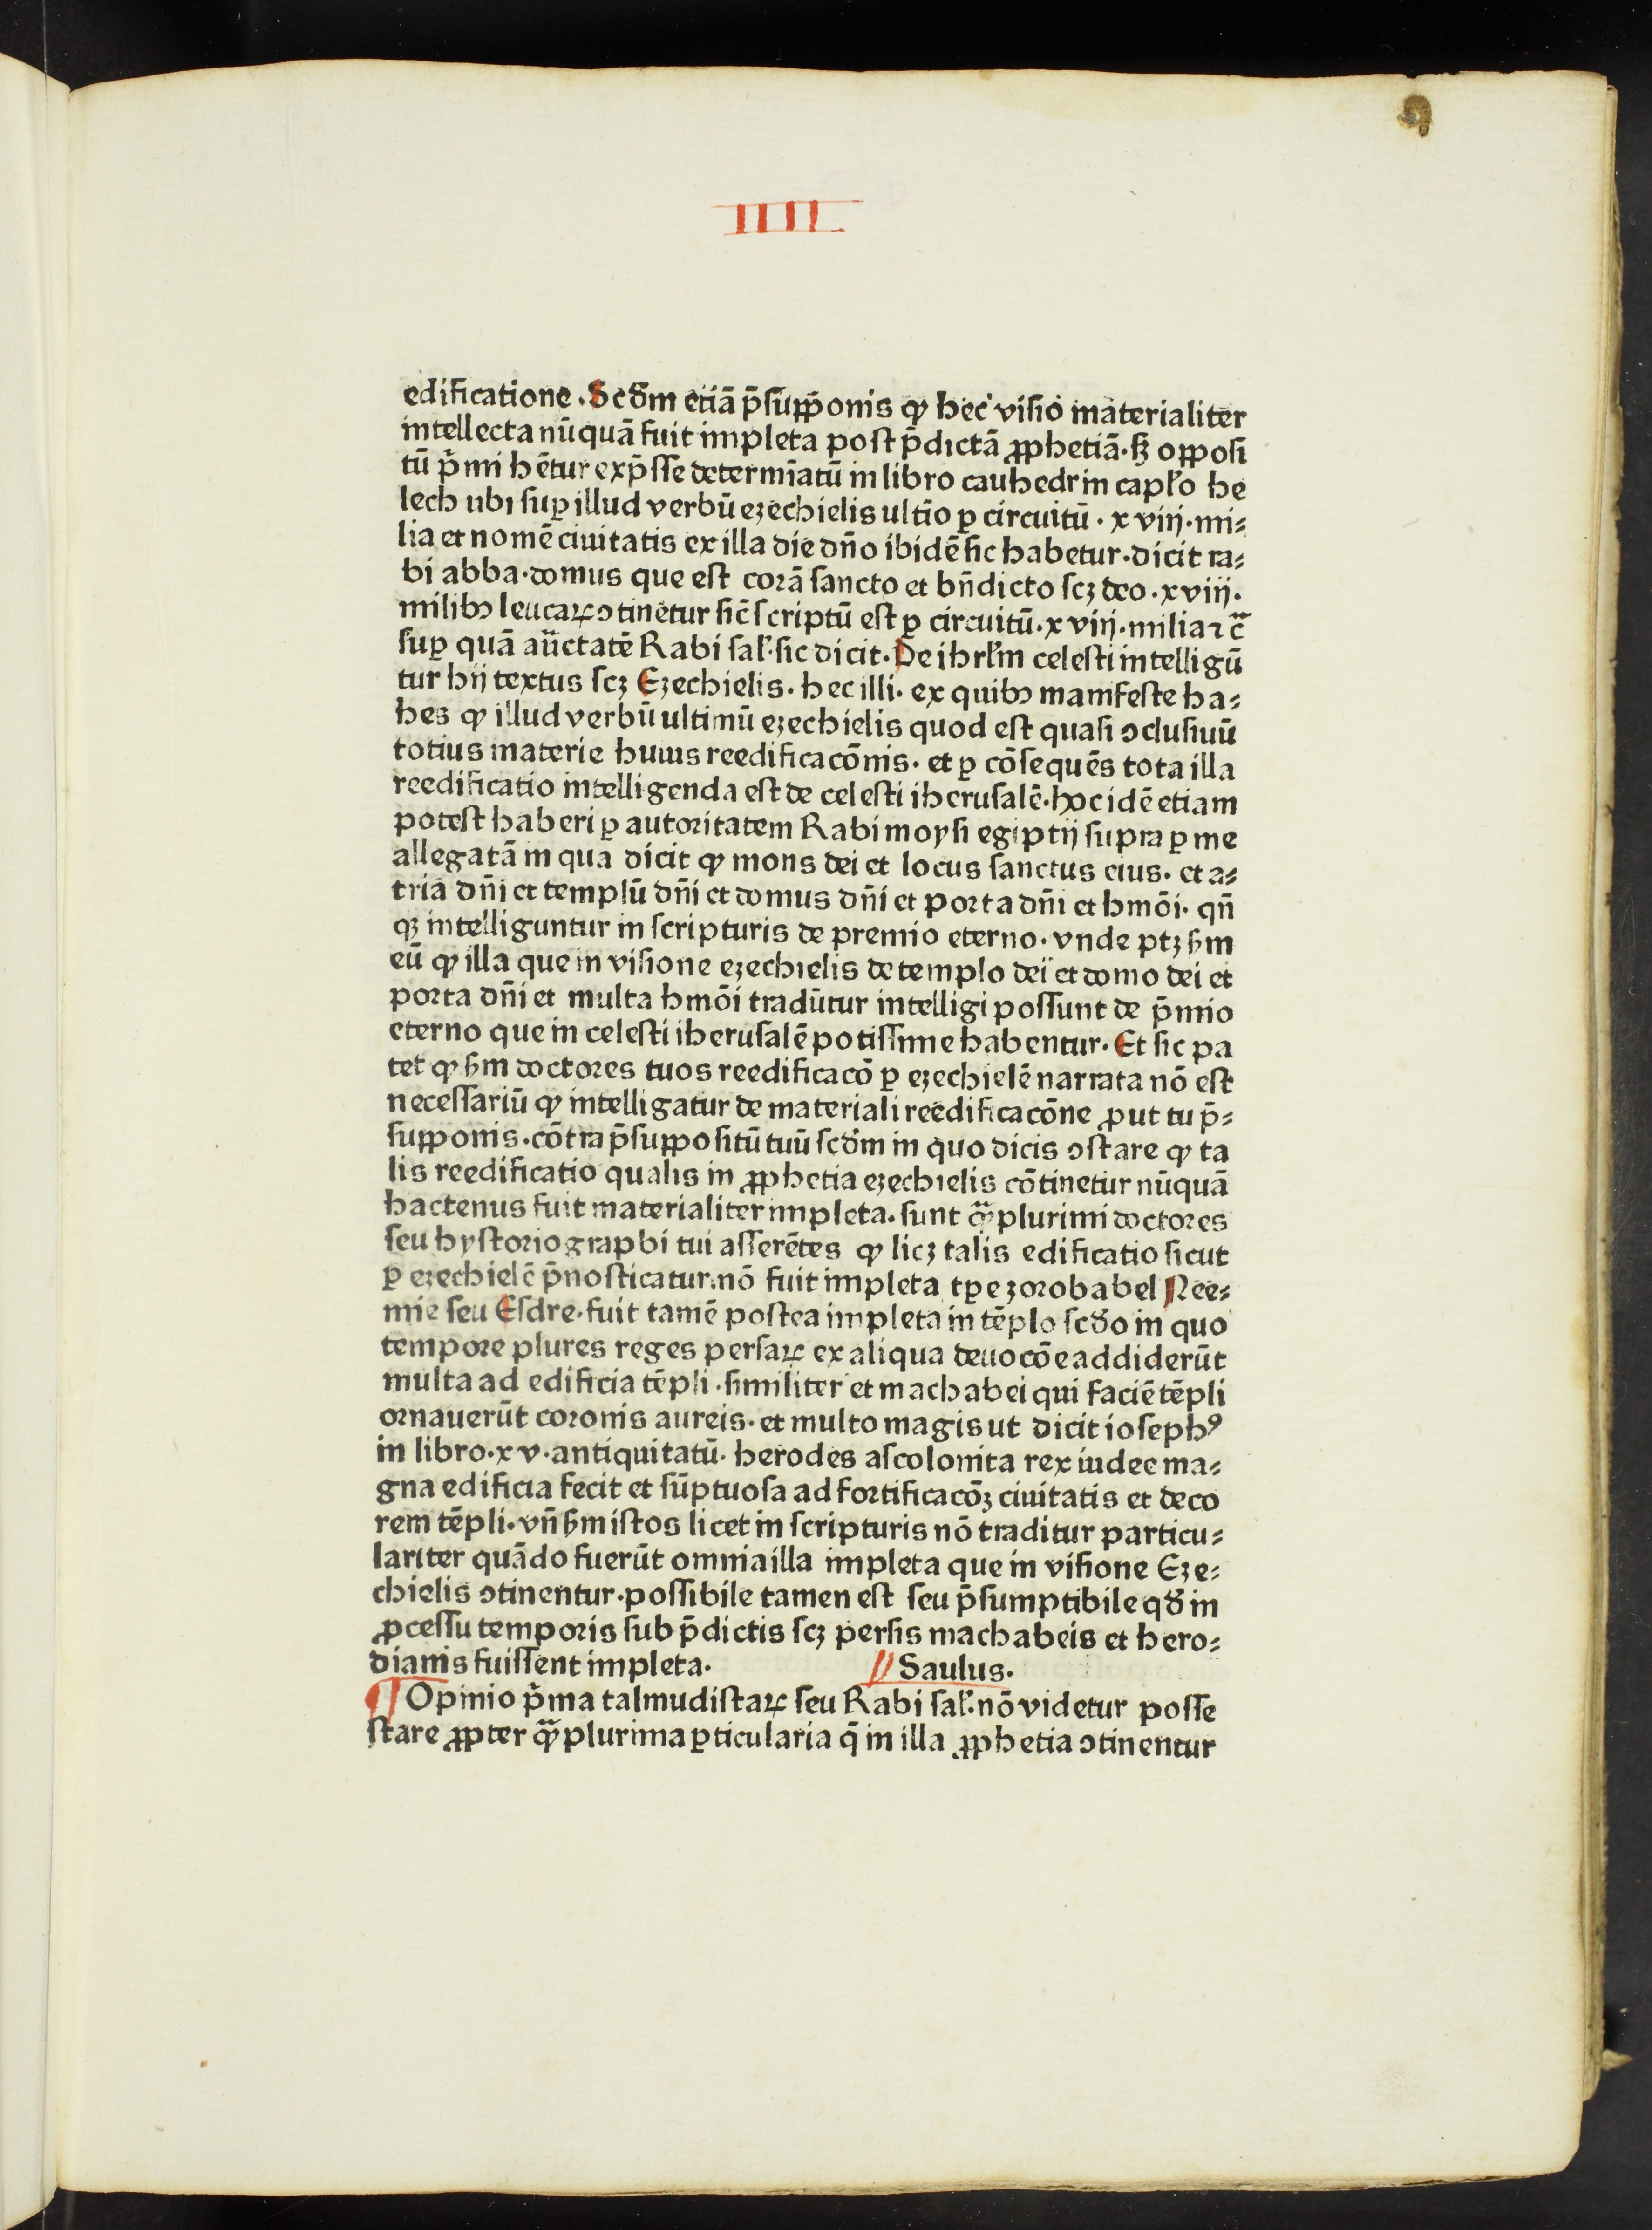 IIII
edificatione. Scd̄m etiā p̄supp̄onis ꝙ hec visio materialiter
intellecta nūquā fuit impleta post p̄dictā ꝓphetiā. sꝫ opposi
tū p̄mi hētur exp̄sse determīatū in libro cauhedrin capl̄o he
lech ubi suꝑ illud verbū ezechielis ultīo ꝑ circuitū. xviij. mi⸗
lia et nomē ciuitatis ex illa die dn̄o ibidē sic habetur. dicit ra⸗
bi abba. domus que est corā sancto et bn̄dicto scꝫ deo. xviij.
milibꝰ leucaꝝ ꝯtinetur sic̄ scriptū est ꝑ circuitū. xviij. milia ⁊c̄
suꝑ quā auc̄tatē Rabi sal̄. sic dicit. De ihrl̄m celesti intelligū
tur hij textus scꝫ Ezechielis. hec illi. ex quibꝰ manifeste ha⸗
bes ꝙ illud verbū ultimū ezechielis quod est quasi ꝯclusiuū
totius materie huius reedificacōnis. et ꝑ cōsequēs tota illa
reedificatio intelligenda est de celesti iherusalē. hoc idē etiam
potest haberi ꝑ autoritatem Rabi moysi egiptij supra ꝑ me
allegatā in qua dicit ꝙ mons dei et locus sanctus eius. et a⸗
tria dn̄i et templū dn̄i et domus dn̄i et porta dn̄i et hmōi. qn̄
qꝫ intelliguntur in scripturis de premio eterno. vnde ptꝫ ẜm
eū ꝙ illa que in visione ezechielis de templo dei et domo dei et
porta dn̄i et multa hmōi tradūtur intelligi possunt de p̄mio
eterno que in celesti iherusalē potissime habentur. Et sic pa
tet ꝙ ẜm doctores tuos reedificacō ꝑ ezechielē narrata nō est
necessariū ꝙ intelligatur de materiali reedificacōne ꝓut tu p̄⸗
supponis. cōtra p̄suppositū tuū scd̄m in quo dicis ꝯstare ꝙ ta
lis reedificatio qualis in ꝓphetia ezechielis cōtinetur nūquā
hactenus fuit materialiter impleta. sunt qͣꝫplurimi doctores
seu hystoriographi tui asserētes ꝙ licꝫ talis edificatio sicut
ꝑ ezechielē p̄nosticatur. nō fuit impleta tꝑe zorobabel Nee⸗
mie seu Esdre. fuit tamē postea impleta in tēplo scd̄o in quo
tempore plures reges persaꝝ ex aliqua deuocōe addiderūt
multa ad edificia tēpli. similiter et machabei qui faciē tēpli
ornauerūt coronis aureis. et multo magis ut dicit iosephꝰ
in libro. xv. antiquitatū. herodes ascolonita rex iudee ma⸗
gna edificia fecit et sūptuosa ad fortificacōꝫ ciuitatis et deco
rem tēpli. vn̄ ẜm istos licet in scripturis nō traditur particu⸗
lariter quādo fuerūt omnia illa impleta que in visione Eze⸗
chielis ꝯtinentur. possibile tamen est seu p̄sumptibile qd̄ in
ꝓcessu temporis sub p̄dictis scꝫ persis machabeis et hero⸗
dianis fuissent impleta. Saulus.
¶ Opinio p̄ma talmudistaꝝ seu Rabi sal̄. nō videtur posse
stare ꝓpter qͣꝫplurima ꝑticularia q̄ in illa ꝓphetia ꝯtinentur